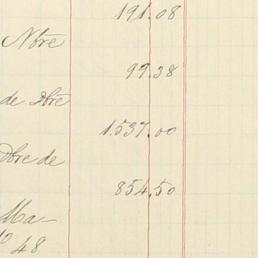 191.08
Nbre
99.38
de Dbre
1.537.00
Dbre de
854.50
Ma-
48